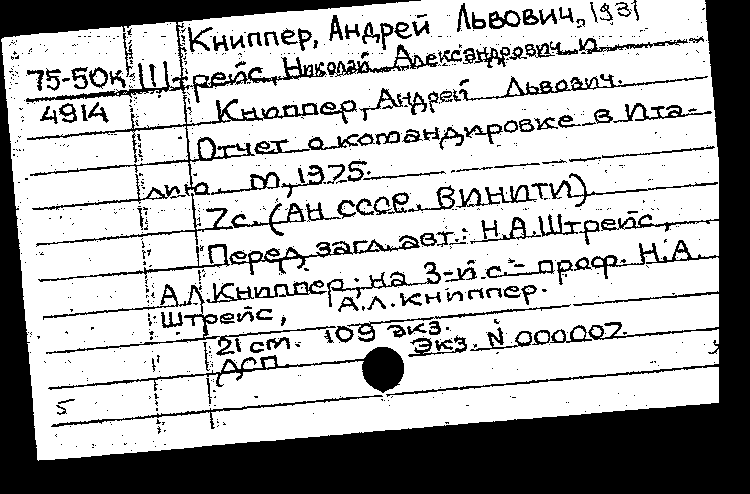 Книппер, Андрей Львович, 1931
75-50к Штрейс, Николай Александрович и
4914 Книппер, Андрей Львович.
Отчет о командировке в Ита-
лию. М., 1975.
7с. (АН СССР. ВИНИТИ).
Перед загл. авт.: Н.А.Штрейс,
А.Л.Книппер; на 3-й с.- проф. Н.А.
Штрейс, А.Л.Книппер.
21 cm. 109 экз.
ДСП. Экз. N 000007.
5